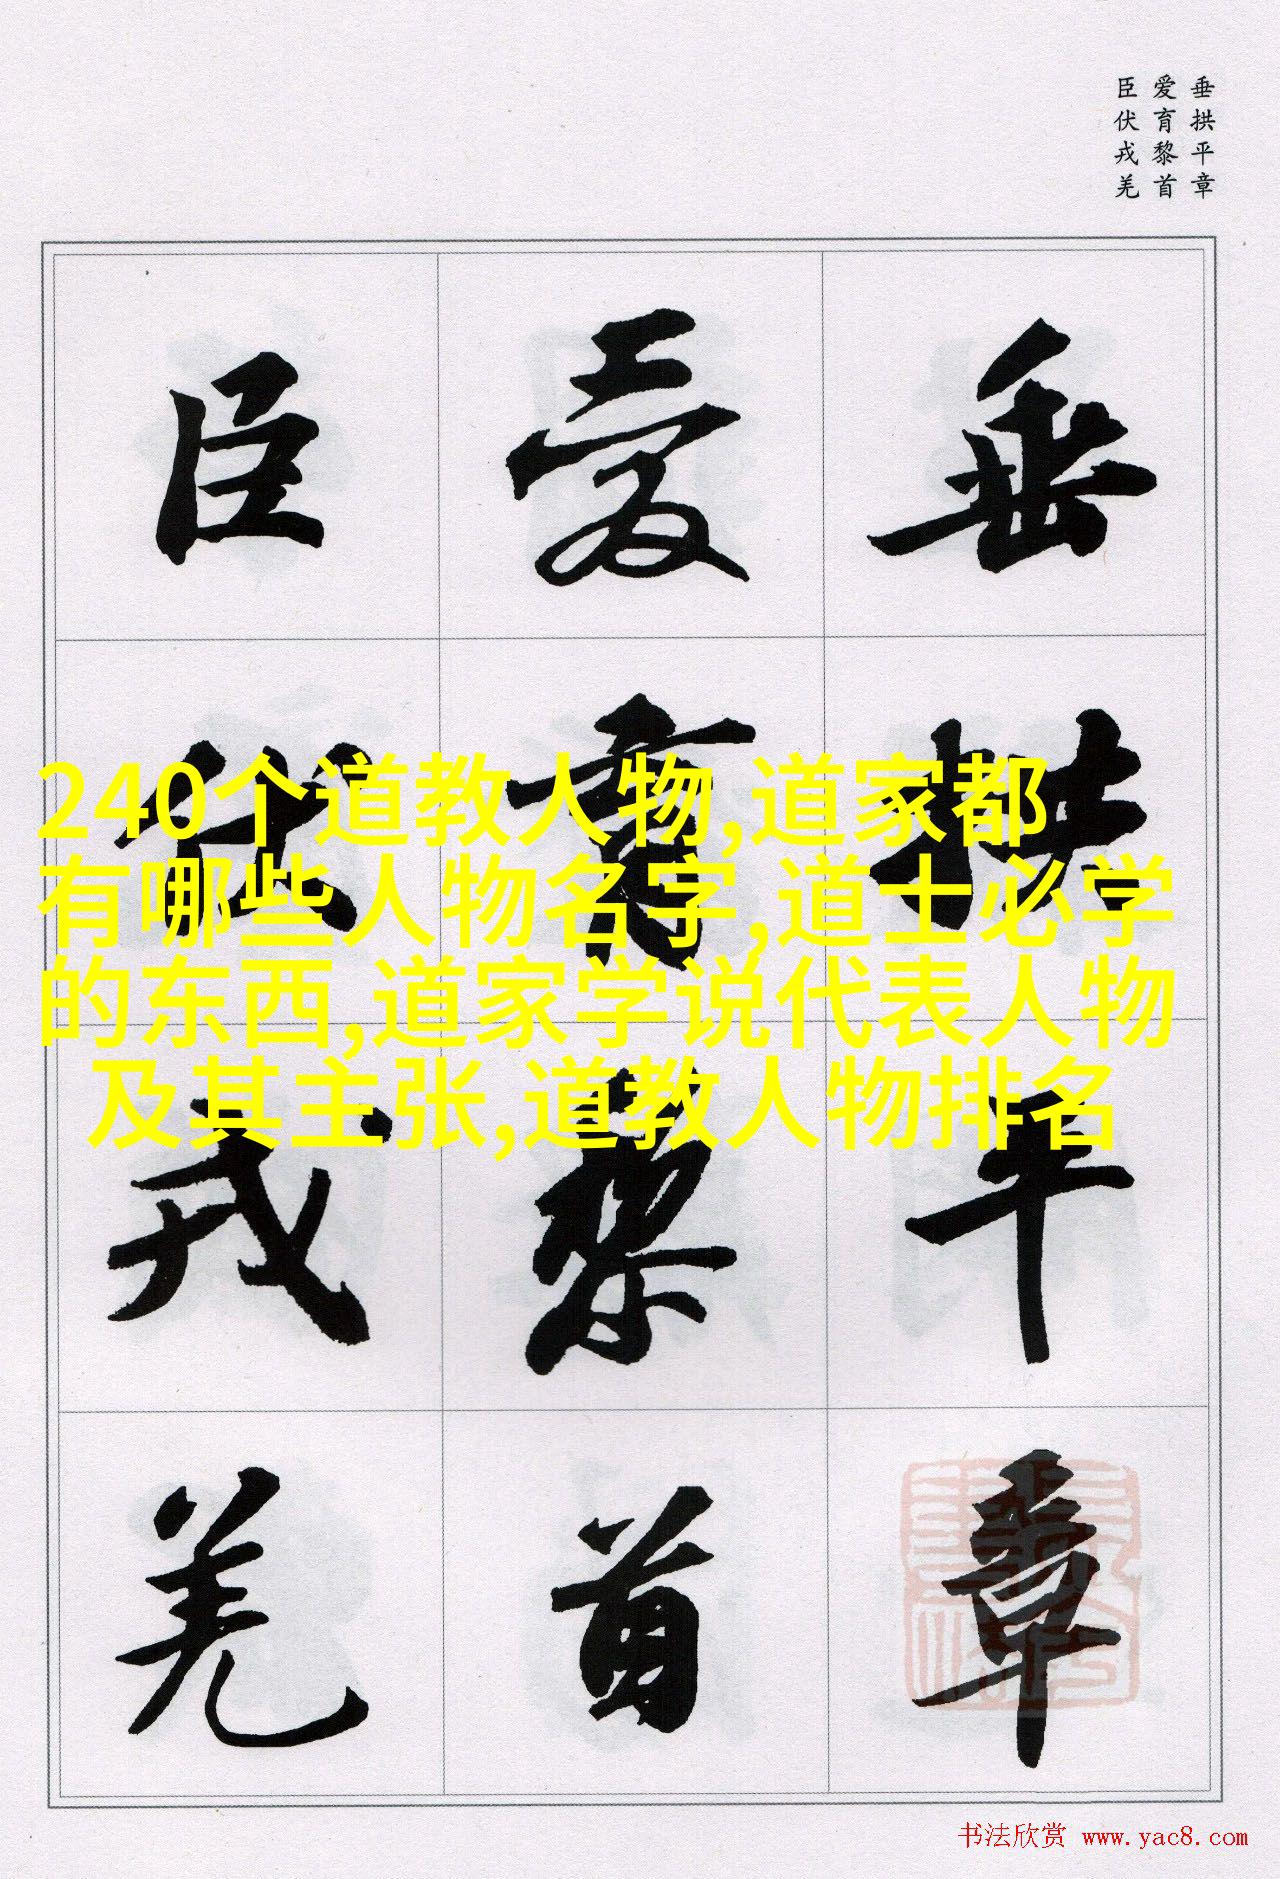 垂拱平章
爱育黎首
臣伏戎羌
垂拱平章
爱育黎首
臣伏戎羌
240个道教人物,道家都
有哪些人物名字,道士必学
的东西,道家学说代表人物
及其主张,道教人物排名
书法欣赏 www.yac8.com